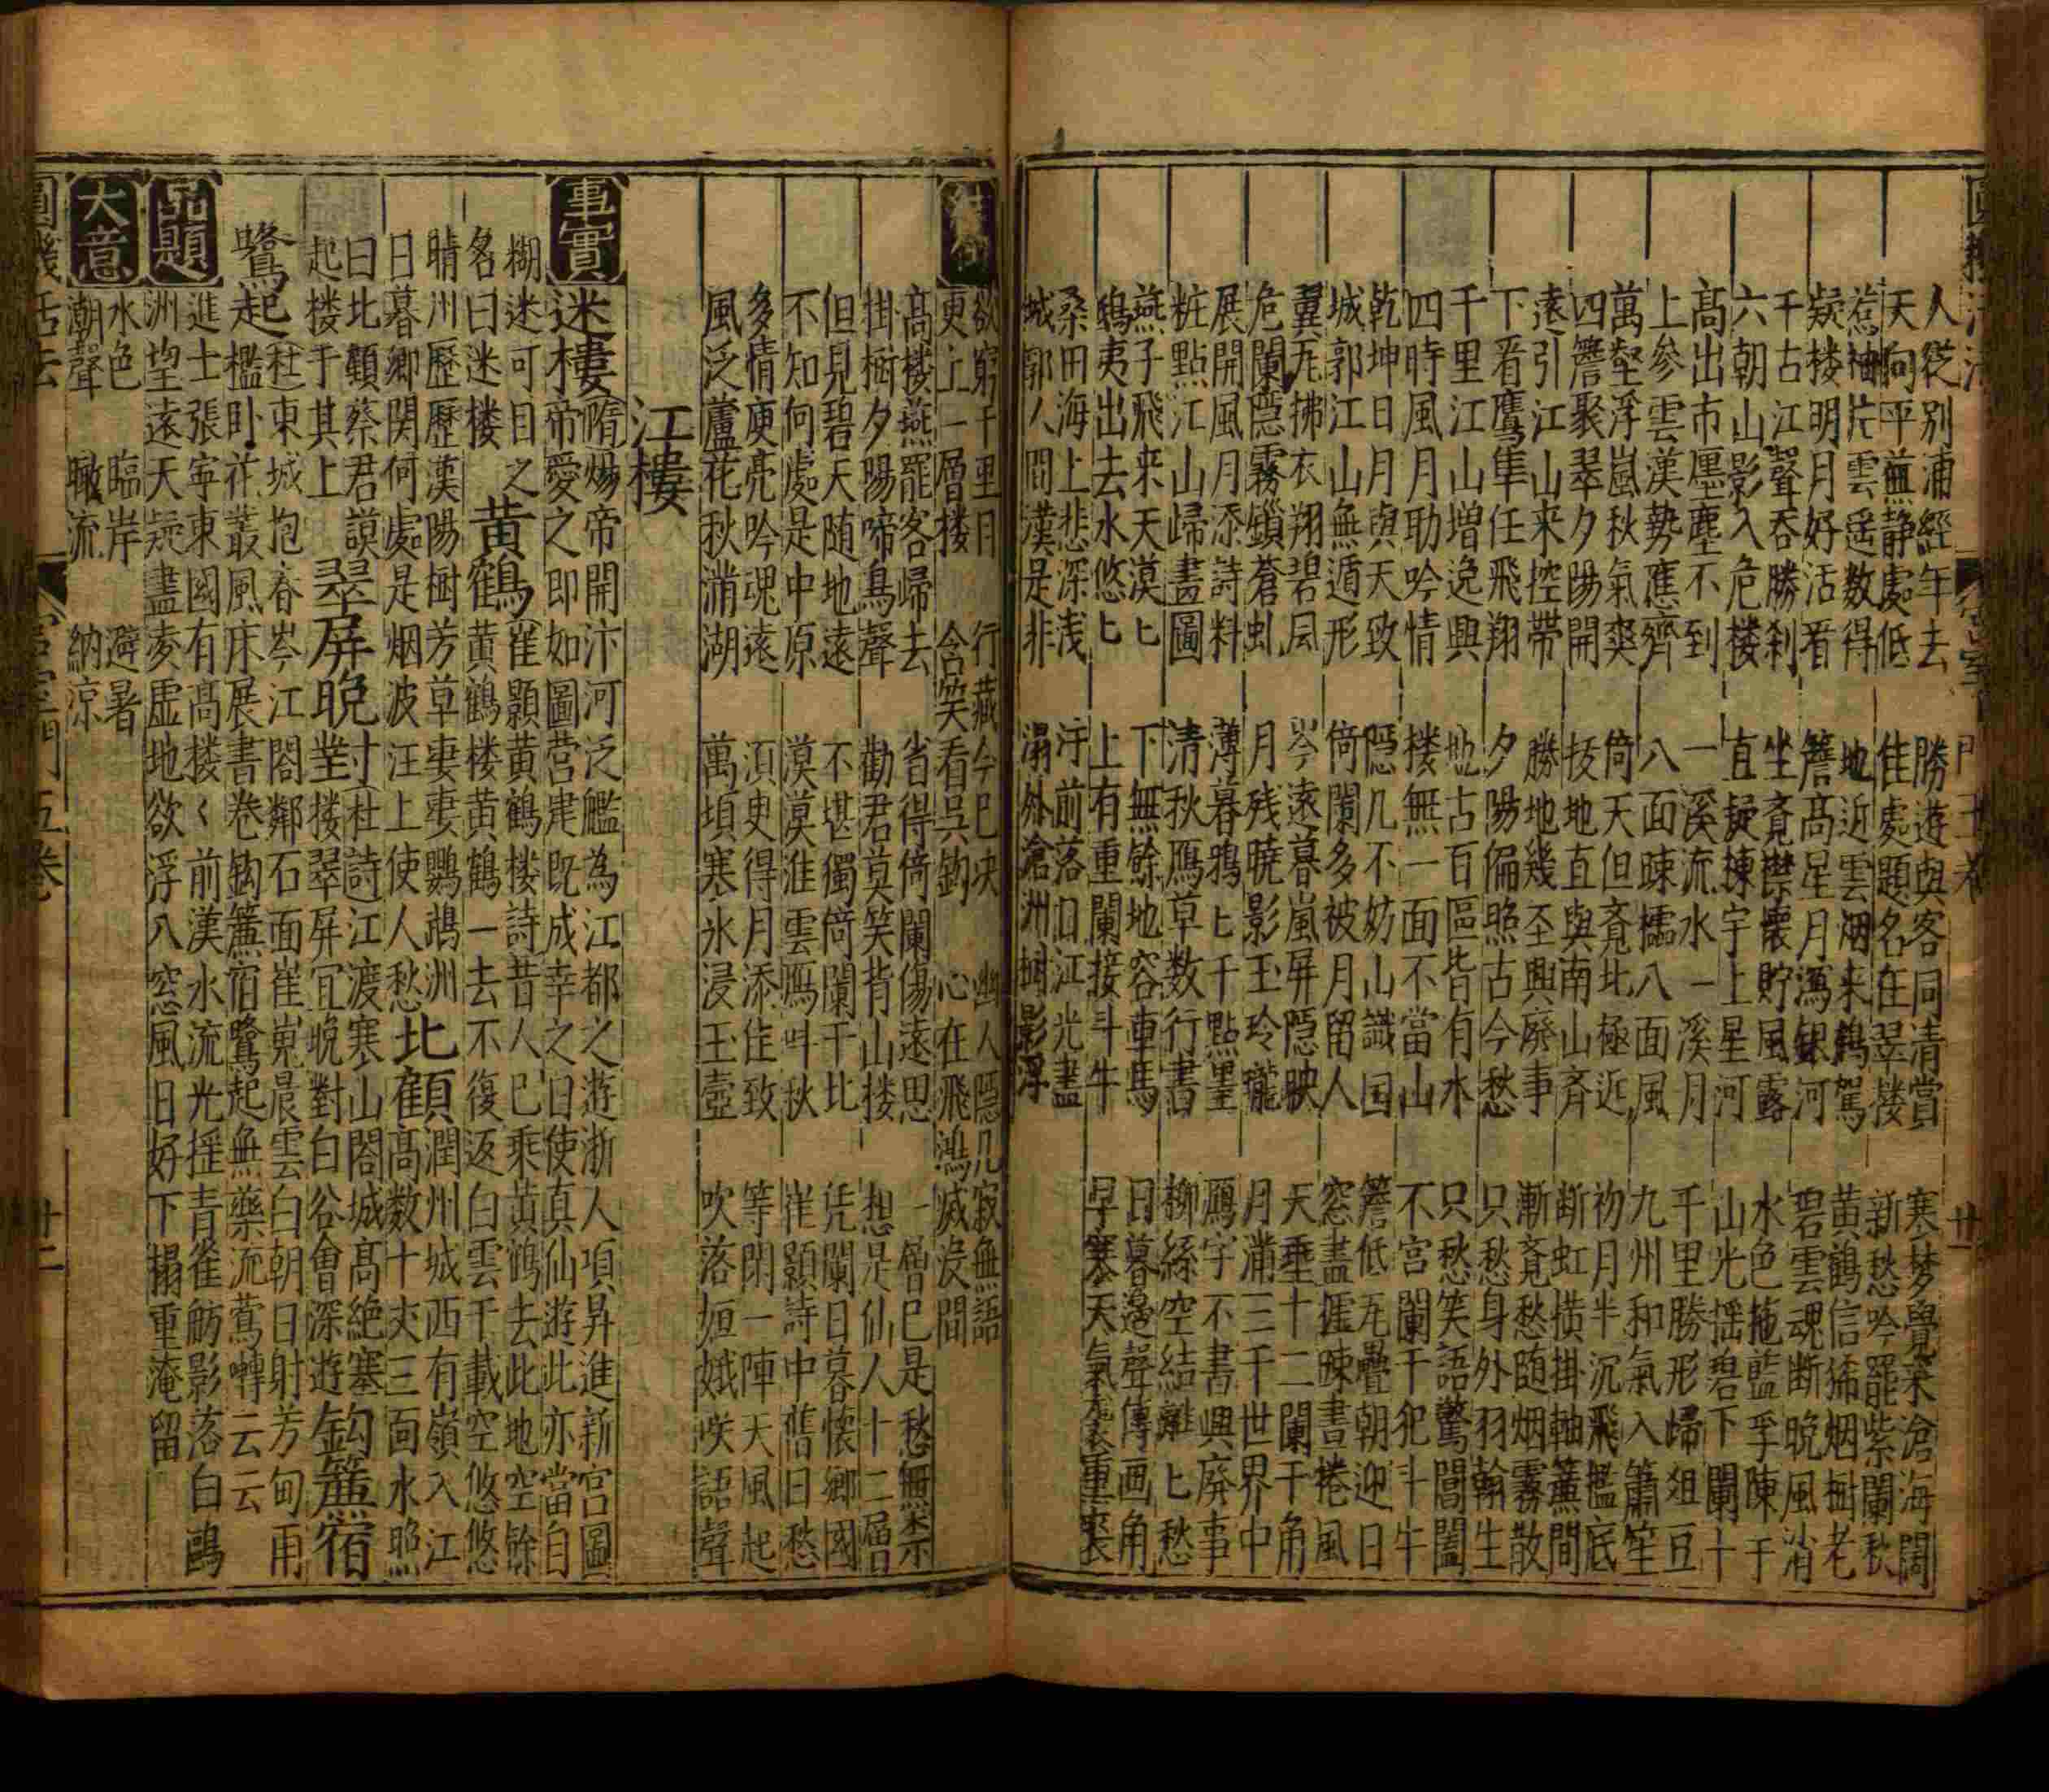 人從別浦經年去　勝遊與客同清賞　寒梦覺来滄海闊
天向平蕪静處低　佳處題名在翠楼　新愁吟罷紫闌秋
惹袖片雲遥数得　地近雲烟来鶴駕　黄鶴信稀烟樹老
疑楼明月好活看　簷高星月瀉銀河　碧雲魂断晚風消
千古江聲吞勝刹　坐覔襟懷貯風露　水色拖藍孚陳干
六朝山影入危楼　直疑棟宇上星河　山光揺碧下闌十
高出市廛塵不到　一溪流水一溪月　千里勝形歸俎豆
上參雲漢勢應齊　八面踈櫺八面風　九州和氣入簫笙
萬壑浮嵐秋氣爽　倚天但覔北極近　初月半沉飛檻底
四簷聚翠夕陽開　拔地直與南山斉　断虹横掛軸簾間
遠引江山来控帶　勝地幾丕興廢事　漸覔愁随烟霧散
下看鷹隼任飛翔　夕陽偏照古今愁　只愁身外羽翰生
千里江山増逸興　地古百區皆有水　只愁笑語驚閶闔
四時風月助吟情　楼無一面不當山　不宫闌干犯斗牛
乾坤日月與天致　隠几不妨山識国　簷低瓦疊朝迎日
城郭江山無遁形　倚闌多被月留人　窓盡踈書捲風
翼瓦拂衣翔碧凨　岑遠暮嵐屏隠映　天垂十二闌干角
危闌隠霧鎻蒼虬　月残暁影玉玲瓏　月滿三千世界中
展開風月添詩料　薄暮鴉匕千點墨　鴈字不書興廢事
粧點江山歸畫圖　清秋鴈草数行書　柳絲空結離匕愁
燕子飛来天漠匕　下無餘地容車馬　日暮邊聲傳画角
鴟夷出去水悠匕　上有重闌接斗牛　早寒天氣重裘
桑田海上悲深浅　汙前落日江光盡
城郭人間漢是非　溻外滄洲樹影浮
欲窮千里月　行藏今已决　幽人隠几寂無語
更上一層楼　含笑看呉鈎　心在飛鴻滅没間
高楼燕罷客歸去　省得倚闌傷遠思　一層已是愁無柰
掛樹夕陽啼鳥聲　勸君莫笑背山楼　想是仙人十二層
但見碧天随地遠　不堪獨倚闌干比　凭闌日暮懷郷國
不知何處是中原　漠漠淮雲鴈呌秋　崔顥詩中舊日愁
多情庾亮吟魂遠　湏臾得月添佳致　等閑一陣天風起
風泛蘆花秋滿湖　萬頃寒氷浸玉壼　吹落姮娥咲語聲
江樓
事實
迷樓隋煬帝開汴河泛艦為江都之遊浙人項昇進新宫圖
帝愛之即如圖营建既成幸之曰使真仙遊此亦當自
糊迷可目之
名曰迷楼
黄鶴崔顥黄鶴楼詩昔人已乘黄鶴去此地空餘
黄鶴楼黄鶴一去不復返白雲千載空悠悠
晴川歷歷漢陽樹芳草妻妻鸚鵡洲
日暮郷関何處是烟波汪上使人愁
北顧潤州城西有嶺入江
高数十丈三面水照
曰北顧蔡君謨
起楼于其上
翠屏晩對杜詩江渡寒山閣城高絶塞
楼翠屏冝晩對白谷會深遊
鈎簾宿鷺起杜東城抱春岑江閣鄰石面崔嵬晨雲白朝日射芳甸雨
檻卧䒾叢風床展書卷鈎簾宿鷺起無藥流鶯囀云云
品題
進士張寕東國有高楼〻前漢水流光揺青雀舫影落白鷗
洲望遠天疑盡夌虚地欲浮八窓風日好下榻重淹留
大意
水色　臨岸　避暑
潮聲　瞰流　納凉
圓機活法　宫室門五卷　廿二